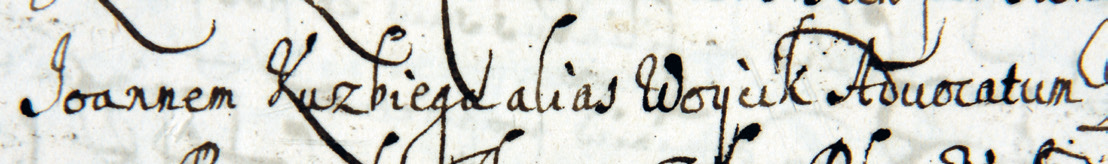 Joannem Kuzbiega alias Woycik Advocatum